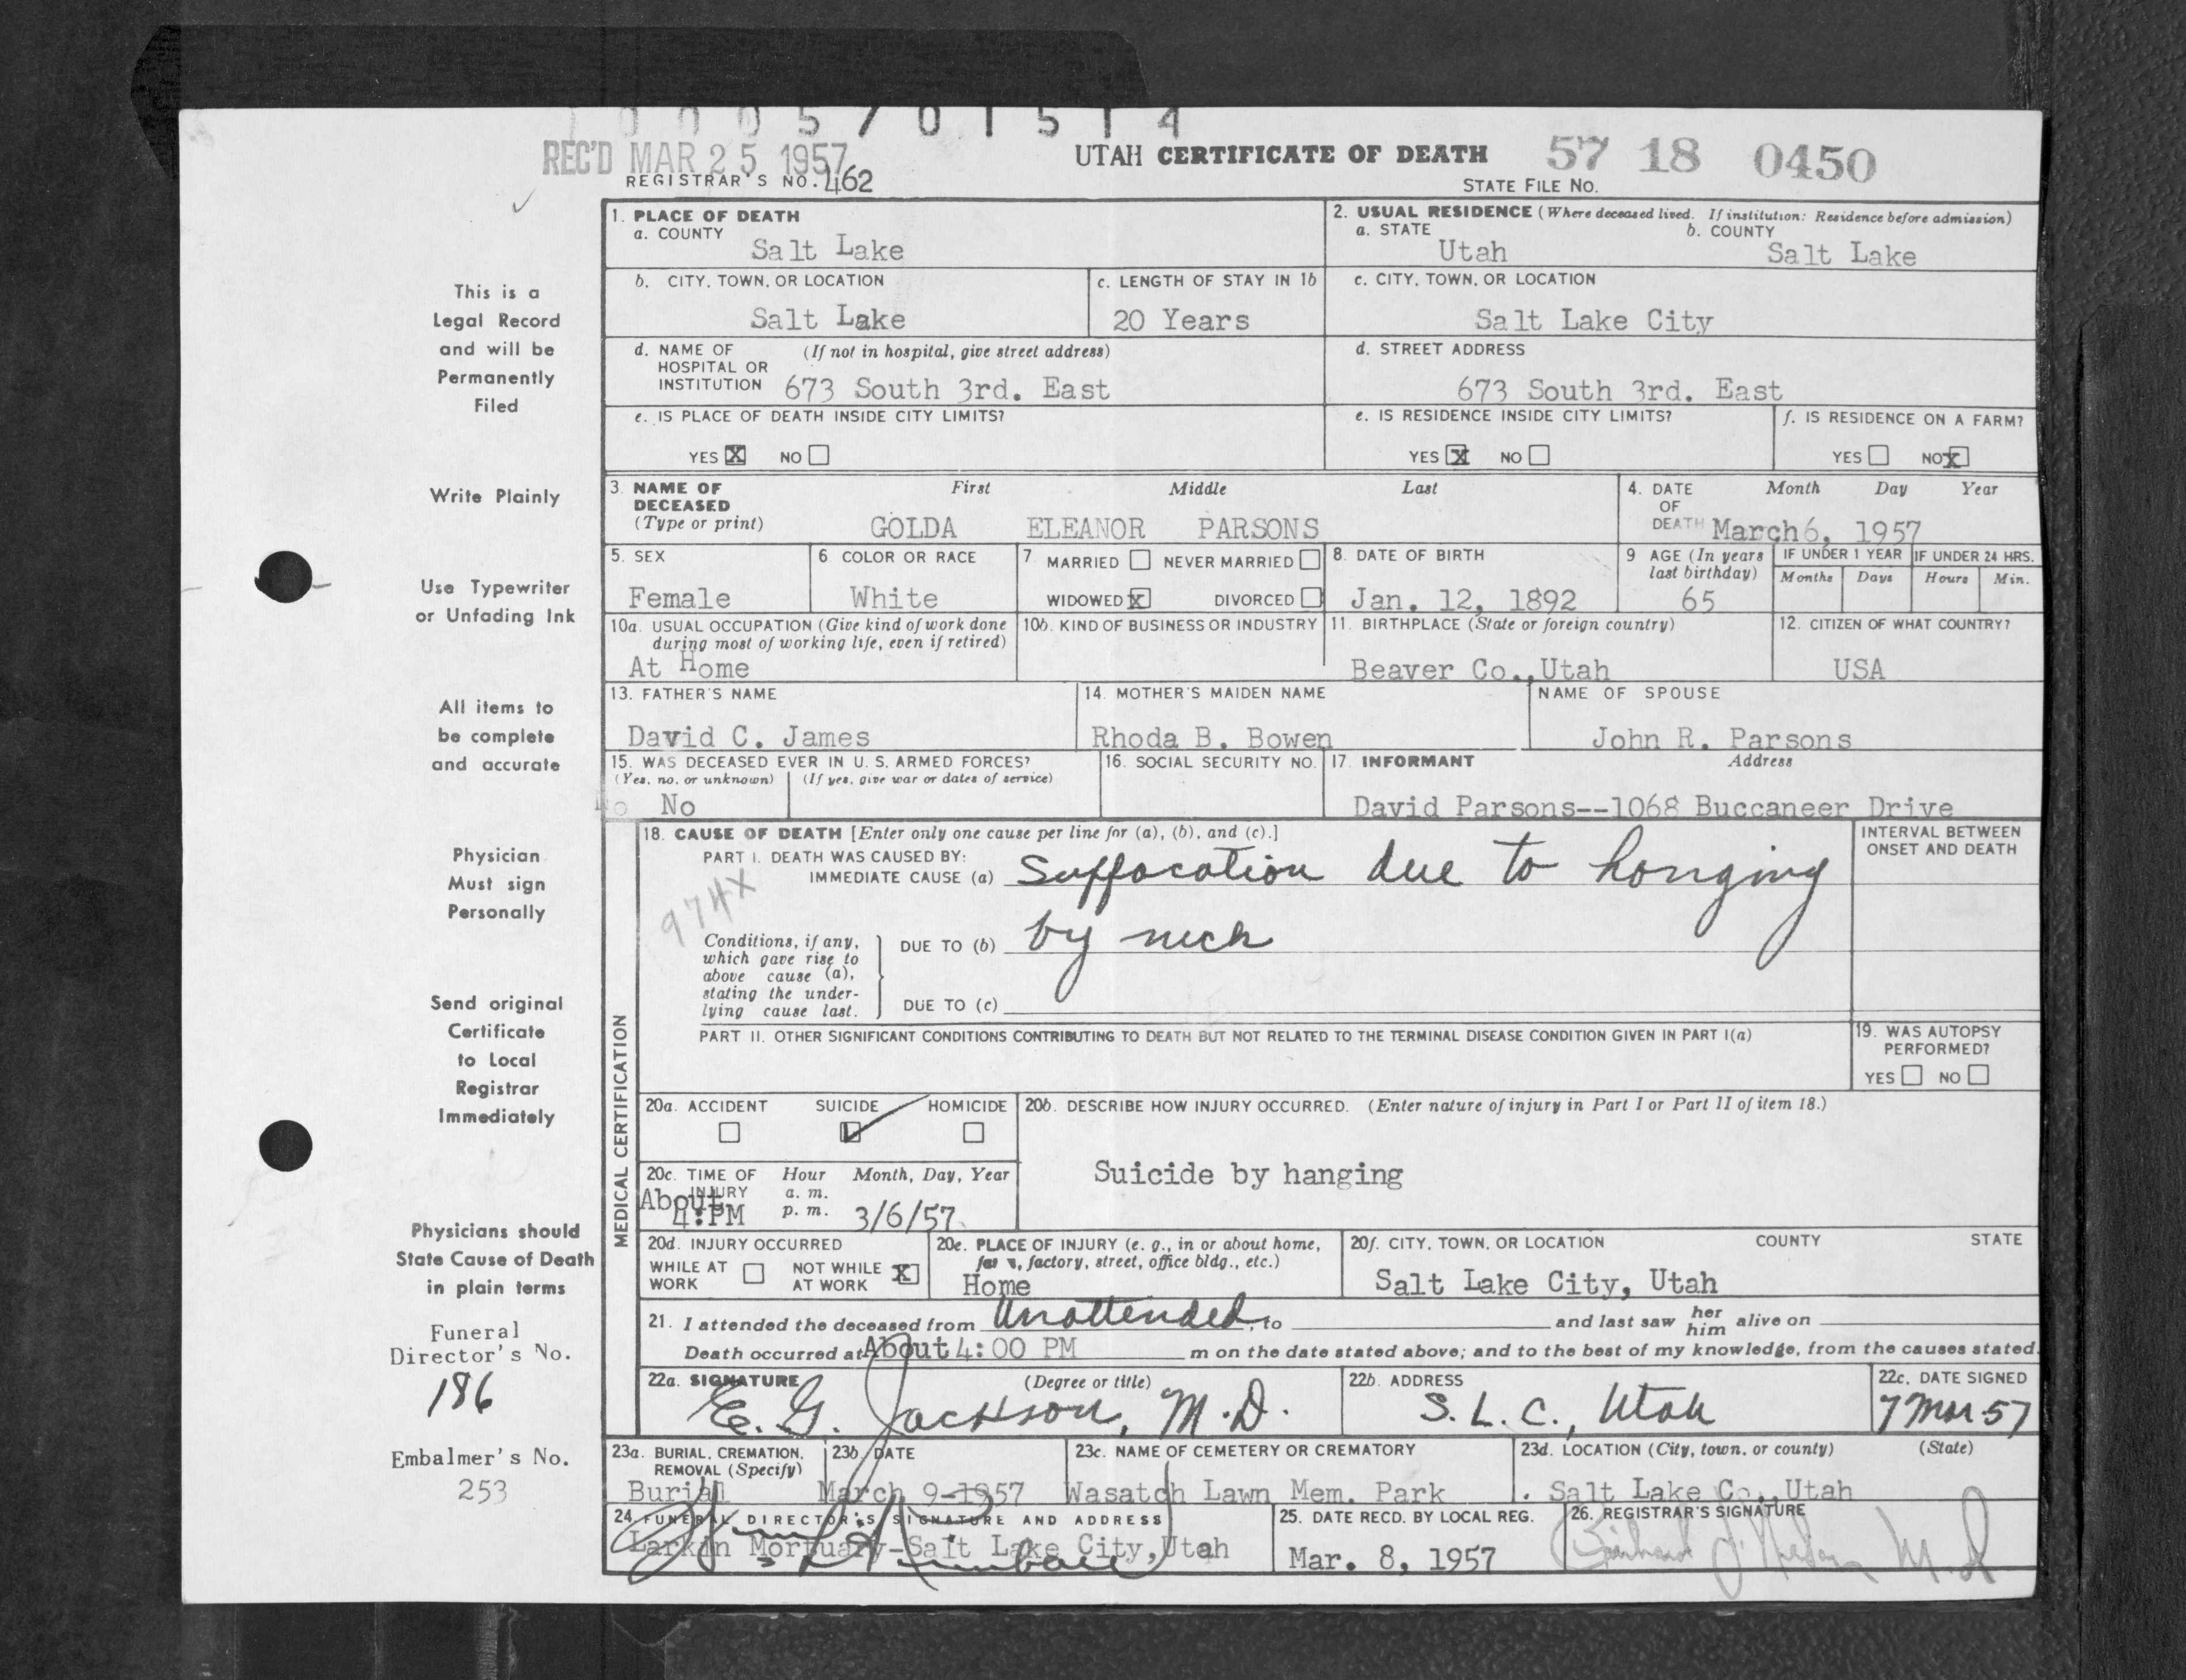 1 0 0 0 5 7 0 1 5 1 4
REC'D MAR 25 1957
UTAH CERTIFICATE OF DEATH 57 18 0450
REGISTRAR'S NO. 462
STATE FILE NO.
This is a
Legal Record
and will be
Permanently
Filed
Write Plainly
Use Typewriter
or Unfading Ink
All items to
be complete
and accurate
Physician
Must sign
Personally
Send original
Certificate
to Local
Registrar
Immediately
Physicians should
State Cause of Death
in plain terms
Funeral
Director's No.
186
Embalmer's No.
253
1. PLACE OF DEATH
a. COUNTY
Salt Lake
2. USUAL RESIDENCE (Where deceased lived. If institution: Residence before admission)
a. STATE b. COUNTY
Utah Salt Lake
b. CITY, TOWN, OR LOCATION
Salt Lake
c. LENGTH OF STAY IN 1b
20 Years
c. CITY, TOWN, OR LOCATION
Salt Lake City
d. NAME OF (If not in hospital, give street address)
HOSPITAL OR
INSTITUTION 673 South 3rd. East
d. STREET ADDRESS
673 South 3rd. East
e. IS PLACE OF DEATH INSIDE CITY LIMITS?
YES X NO
e. IS RESIDENCE INSIDE CITY LIMITS?
YES X NO
f. IS RESIDENCE ON A FARM?
YES NO X
3. NAME OF First Middle Last
DECEASED
(Type or print) GOLDA ELEANOR PARSONS
4. DATE Month Day Year
OF
DEATH March 6, 1957
5. SEX
Female
6 COLOR OR RACE
White
7 MARRIED NEVER MARRIED
WIDOWED X DIVORCED
8. DATE OF BIRTH
Jan. 12, 1892
9 AGE (In years
last birthday)
65
IF UNDER 1 YEAR IF UNDER 24 HRS.
Months Days Hours Min.
10a. USUAL OCCUPATION (Give kind of work done
during most of working life, even if retired)
At Home
10b. KIND OF BUSINESS OR INDUSTRY
11. BIRTHPLACE (State or foreign country)
Beaver Co., Utah
12. CITIZEN OF WHAT COUNTRY?
USA
13. FATHER'S NAME
David C. James
14. MOTHER'S MAIDEN NAME
Rhoda B. Bowen
NAME OF SPOUSE
John R. Parsons
15. WAS DECEASED EVER IN U. S. ARMED FORCES?
(Yes, no, or unknown) (If yes, give war or dates of service)
No No
16. SOCIAL SECURITY NO.
17. INFORMANT Address
David Parsons--1068 Buccaneer Drive
MEDICAL CERTIFICATION
18. CAUSE OF DEATH [Enter only one cause per line for (a), (b), and (c).]
PART I. DEATH WAS CAUSED BY:
IMMEDIATE CAUSE (a) Suffocation due to hanging
974X
Conditions, if any,
which gave rise to
above cause (a),
stating the under-
lying cause last.
DUE TO (b) by neck
DUE TO (c)
INTERVAL BETWEEN
ONSET AND DEATH
PART II. OTHER SIGNIFICANT CONDITIONS CONTRIBUTING TO DEATH BUT NOT RELATED TO THE TERMINAL DISEASE CONDITION GIVEN IN PART I(a)
19. WAS AUTOPSY
PERFORMED?
YES NO
20a. ACCIDENT SUICIDE HOMICIDE
20b. DESCRIBE HOW INJURY OCCURRED. (Enter nature of injury in Part I or Part II of item 18.)
Suicide by hanging
20c. TIME OF Hour Month, Day, Year
INJURY a. m.
p. m.
About
4:PM 3/6/57
20d. INJURY OCCURRED
WHILE AT WORK NOT WHILE AT WORK X
20e. PLACE OF INJURY (e. g., in or about home,
farm, factory, street, office bldg., etc.)
Home
20f. CITY, TOWN, OR LOCATION COUNTY STATE
Salt Lake City, Utah
21. I attended the deceased from Unattended, to and last saw her him alive on
Death occurred at About 4:00 PM m on the date stated above; and to the best of my knowledge, from the causes stated.
22a. SIGNATURE (Degree or title)
E. G. Jackson, M.D.
22b. ADDRESS
S. L. C., Utah
22c. DATE SIGNED
7 Mar 57
23a. BURIAL, CREMATION,
REMOVAL (Specify)
Burial
23b. DATE
March 9-1957
23c. NAME OF CEMETERY OR CREMATORY
Wasatch Lawn Mem. Park
23d. LOCATION (City, town, or county) (State)
. Salt Lake Co., Utah
24. FUNERAL DIRECTOR'S SIGNATURE AND ADDRESS
Larkin Mortuary-Salt Lake City, Utah
25. DATE RECD. BY LOCAL REG.
Mar. 8, 1957
26. REGISTRAR'S SIGNATURE
M D